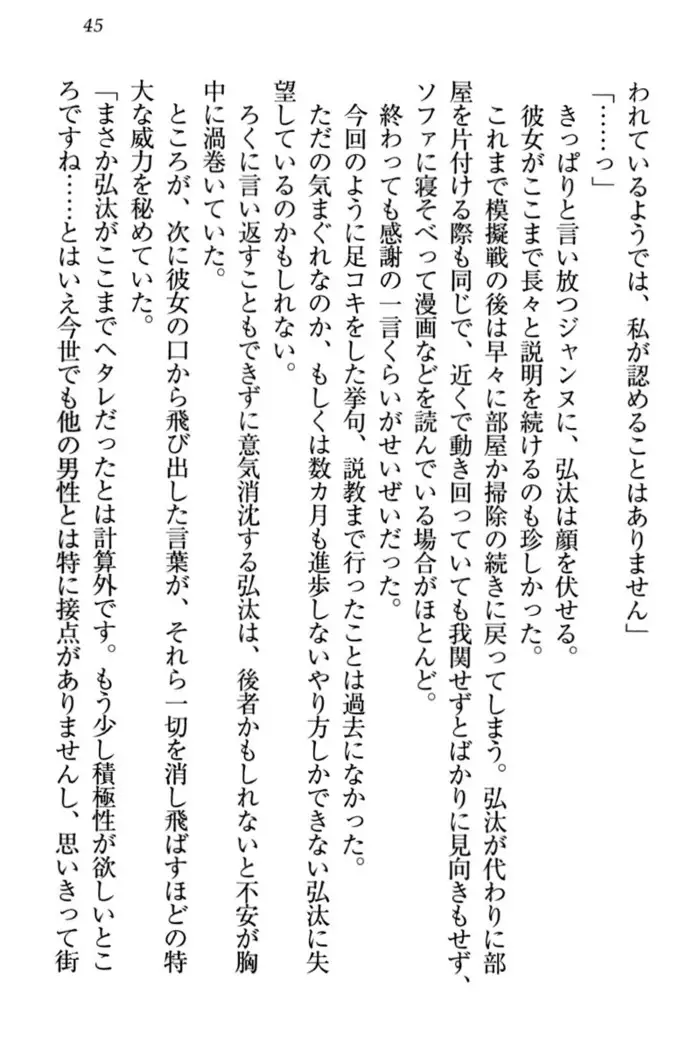 45
われているようでは、私が認めることはありません」
「……っ」
きっぱりと言い放つジャンヌに、弘汰は顔を伏せる。
彼女がここまで長々と説明を続けるのも珍しかった。
これまで模擬戦の後は早々に部屋か掃除の続きに戻ってしまう。弘汰が代わりに部
屋を片付ける際も同じで、近くで動き回っていても我関せずとばかりに見向きもせず、
ソファに寝そべって漫画などを読んでいる場合がほとんど。
終わっても感謝の一言くらいがせいぜいだった。
今回のように足コキをした挙句、説教まで行ったことは過去になかった。
ただの気まぐれなのか、もしくは数カ月も進歩しないやり方しかできない弘汰に失
望しているのかもしれない。
ろくに言い返すこともできずに意気消沈する弘汰は、後者かもしれないと不安が胸
中に渦巻いていた。
ところが、次に彼女の口から飛び出した言葉が、それら一切を消し飛ばすほどの特
大な威力を秘めていた。
「まさか弘汰がここまでヘタレだったとは計算外です。もう少し積極性が欲しいとこ
ろですね……とはいえ今世でも他の男性とは特に接点がありませんし、思いきって街